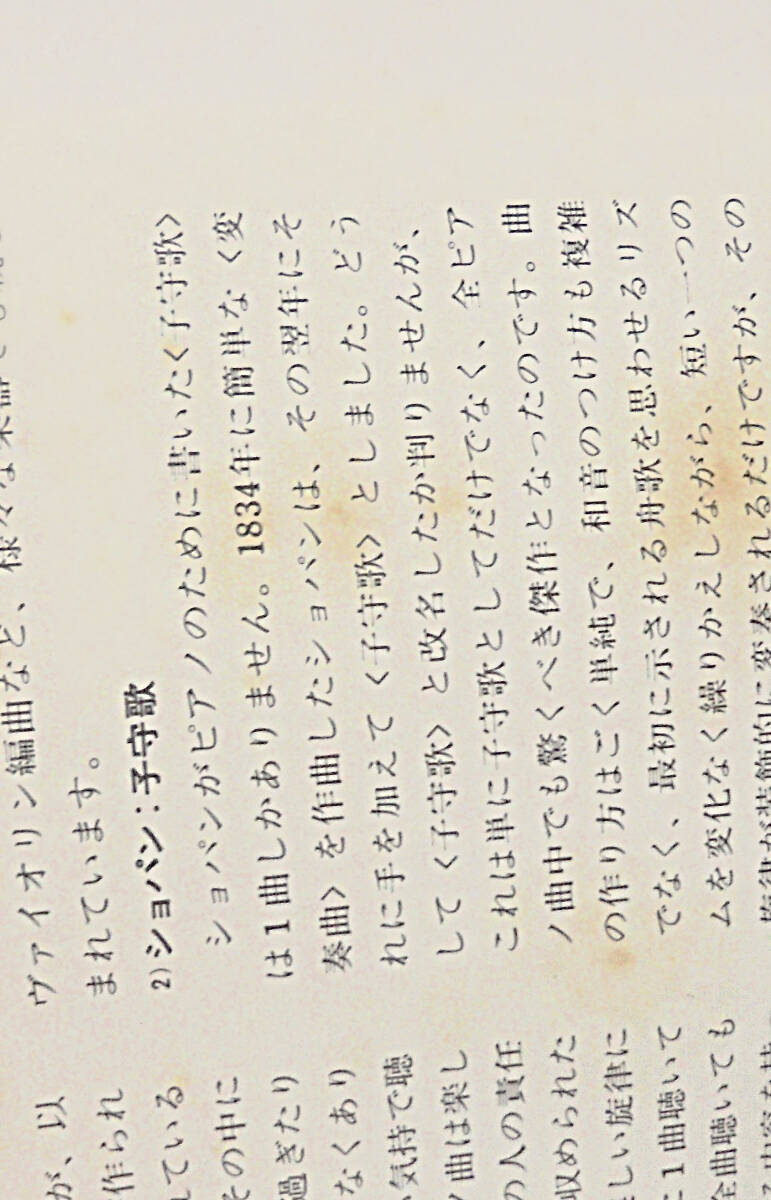 ヴァイオリン編曲など、様々な楽器
まれています。
2) ショパン：子守歌
ショパンがピアノのために書いた〈子守歌〉
は1曲しかありません。1834年に簡単な〈変
奏曲〉を作曲したショパンは、その翌年にそ
れに手を加えて〈子守歌〉としました。どう
して〈子守歌〉と改名したか判りませんが、
これは単に子守歌としてだけでなく、全ピア
ノ曲中でも驚くべき傑作となったのです。曲
の作り方はごく単純で、和音のつけ方も複雑
でなく、最初に示される舟歌を思わせるリズ
ムを変化なく繰りかえしながら、短い一つの
旋律が装飾的に変奏されるだけですが、その
が、以
作られ
れている
その中に
過ぎたり
なくあり
気持で聴
曲は楽し
の人の責任
収められた
しい旋律に
1曲聴いて
全曲聴いても